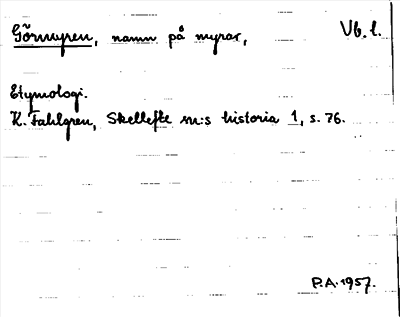 Görmyren, namn på myrar, Vb. l.
Etymologi.
K. Fahlgren, Skellefte sn:s historia 1, s. 76.
P.A. 1957.